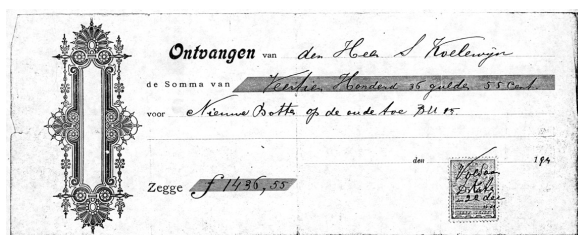 Ontvangen van den Heer S Koelewijn
de Somma van Veertien Honderd 36 gulden 55 cent.
voor Nieuwe Botter op de oude toe BU 05.
den 194
Zegge ƒ 1436,55
Voldaan
22 dec